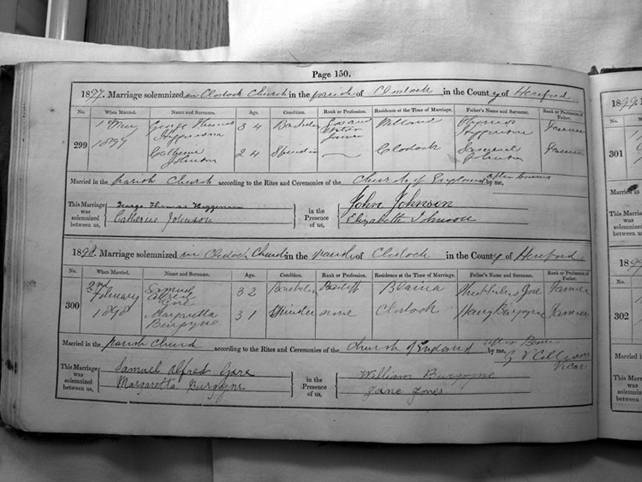 Page 150.
1897. Marriage solemnized in Clodock Church in the parish of Clodock in the County of Hereford
No. When Married. Name and Surname. Age. Condition. Rank or Profession. Residence at the Time of Marriage. Father's Name and Surname. Rank or Profession of Father.
299 George Thomas 34 Bachelor
1897 Catherine Johnson 24 Spinster — Clodock Samuel Johnson Farmer
Married in the Parish Church according to the Rites and Ceremonies of the Church of England after Banns by me,
This Marriage was solemnized between us, George Thomas in the Presence of us, John Johnson
Catherine Johnson Elizabeth Johnson
1898. Marriage solemnized in Clodock Church in the parish of Clodock in the County of Hereford
No. When Married. Name and Surname. Age. Condition. Rank or Profession. Residence at the Time of Marriage. Father's Name and Surname. Rank or Profession of Father.
300 2nd February Samuel Alfred Gore 32 Bachelor Blaina Gore Farmer
1898 Margaretta Burgoyne 31 Spinster Clodock Henry Burgoyne Farmer
Married in the parish Church according to the Rites and Ceremonies of the Church of England after Banns by me,
Vicar
This Marriage was solemnized between us, Samuel Alfred Gore in the Presence of us, William Burgoyne
Margaretta Burgoyne Jane Jones
301
302